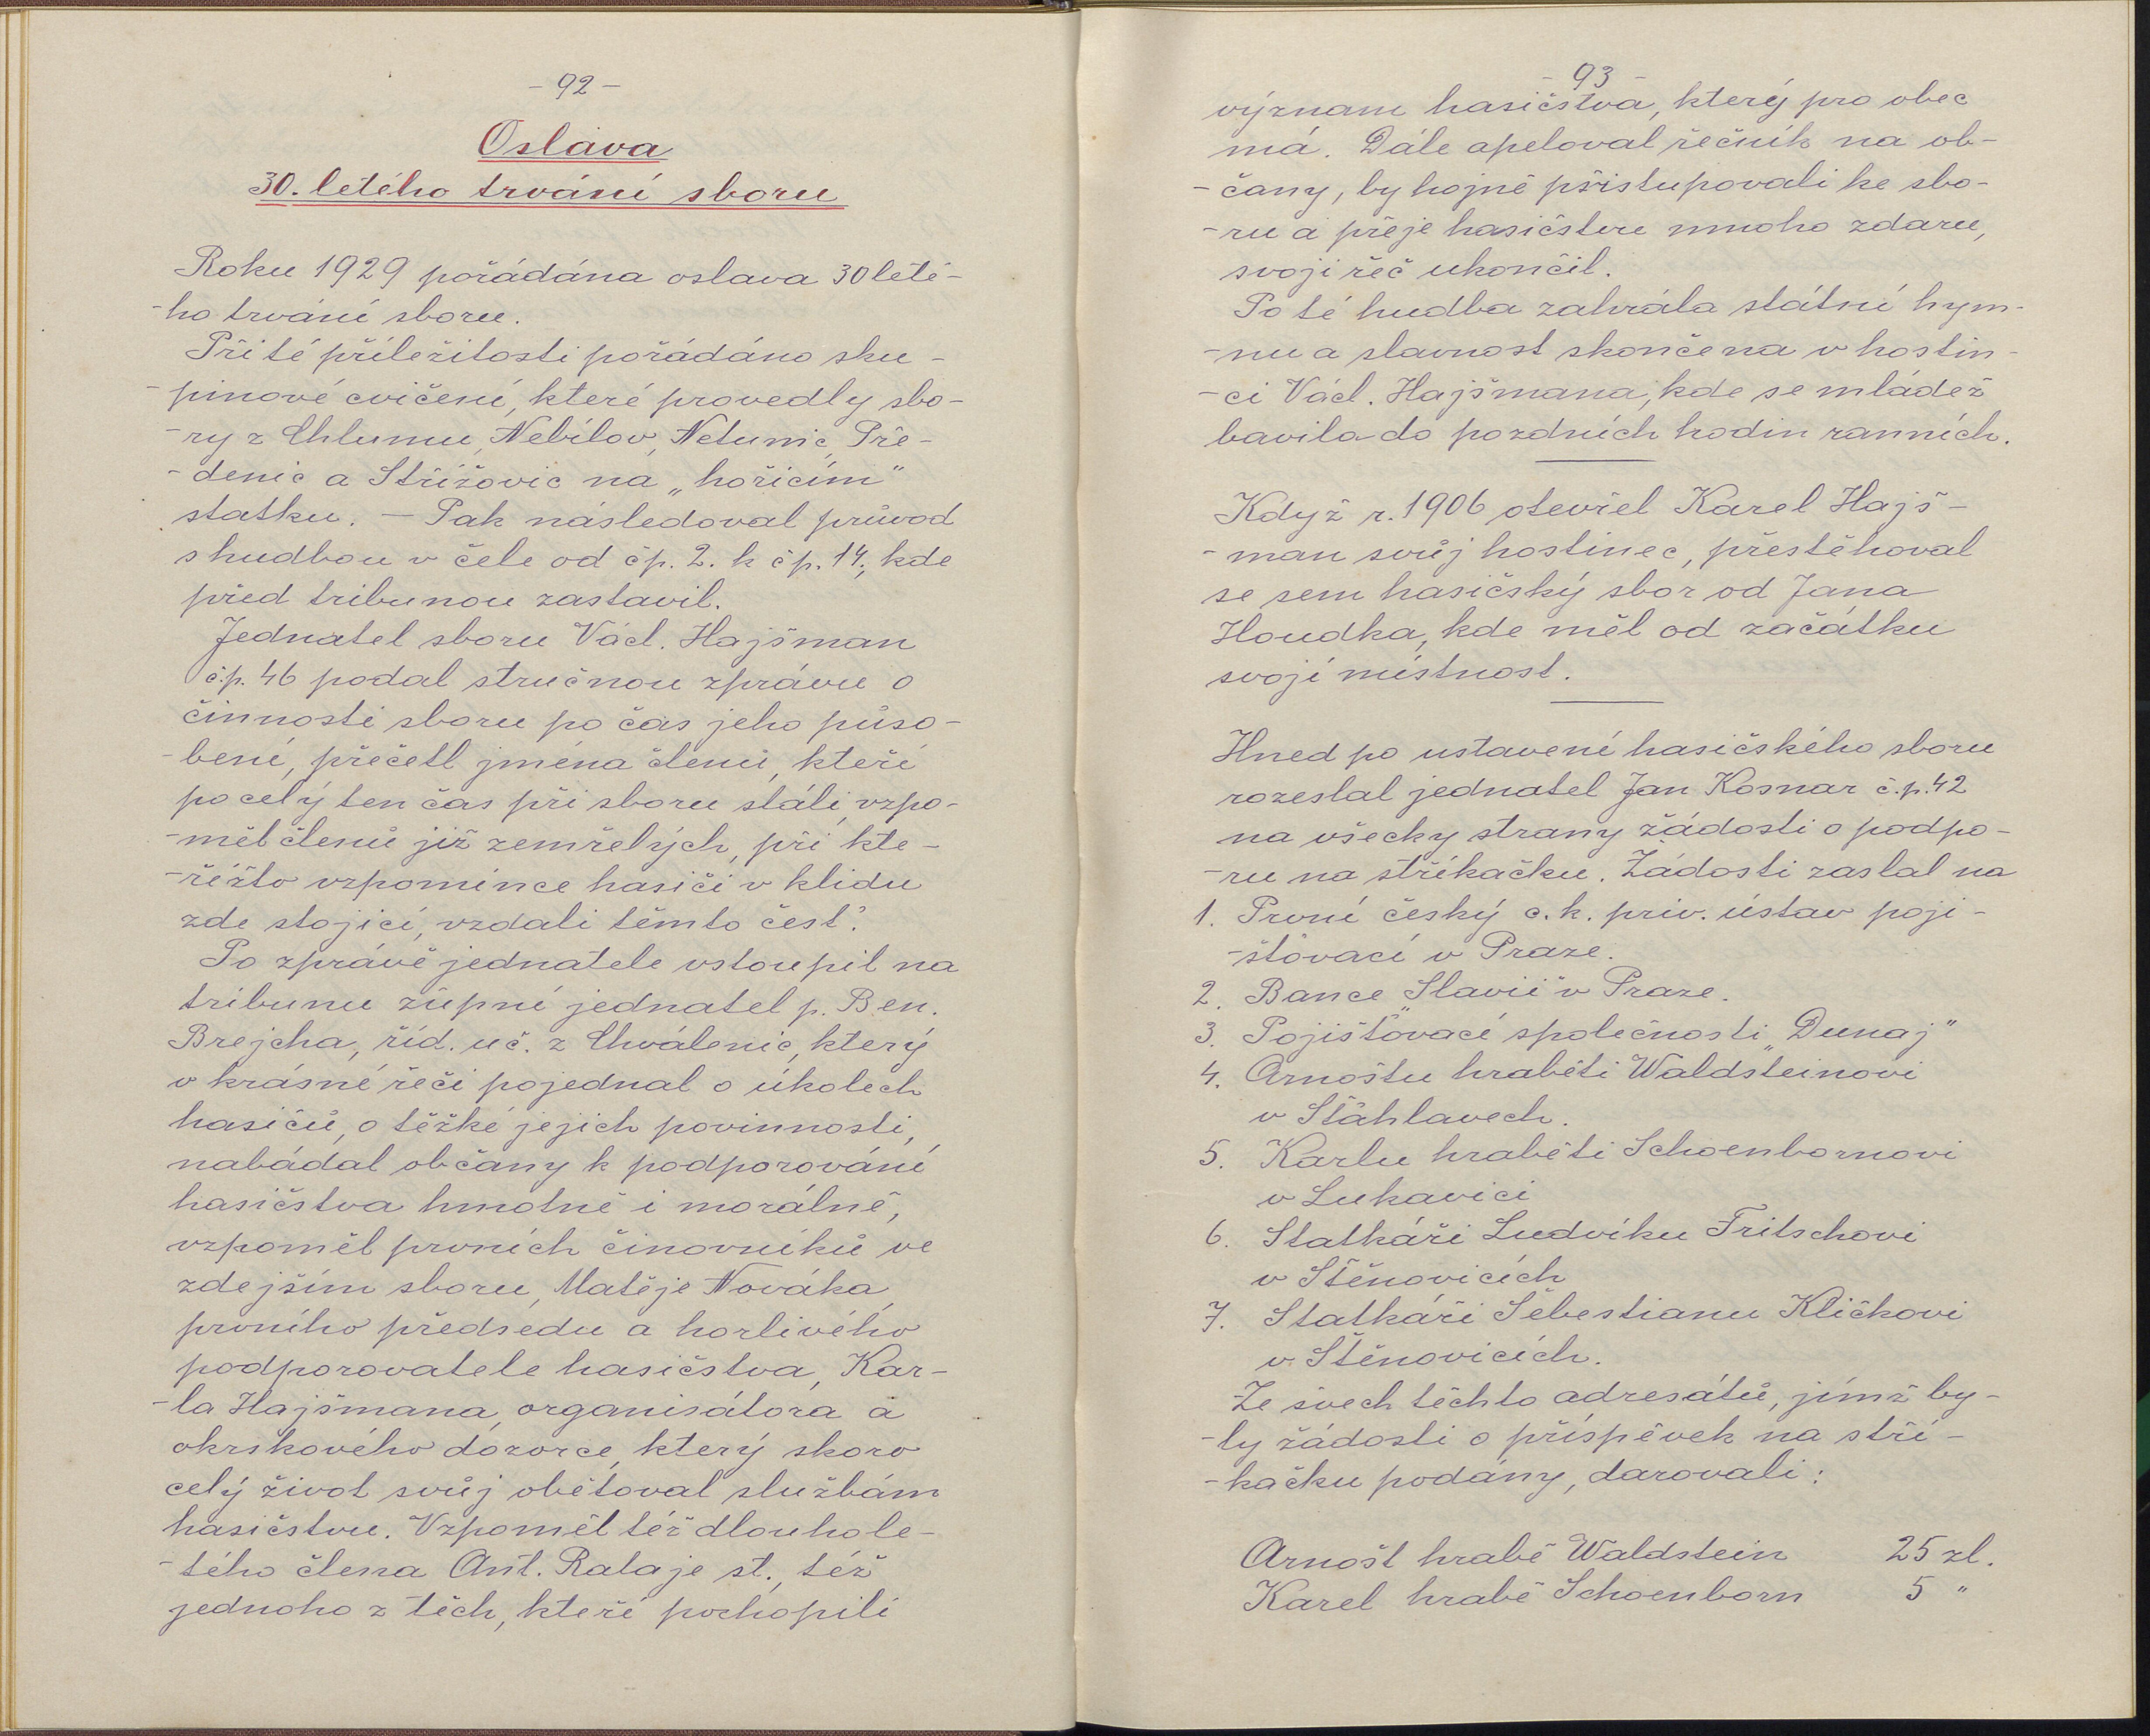 - 92 -
Oslava
30. letého trvání sboru
Roku 1929 pořádána oslava 30 leté-
-ho trvání sboru.
Při té příležitosti pořádáno sku-
-pinové cvičení, které provedly sbo-
-ry z Chlumu, Nebílov, Netunic, Pře-
-denic a Střížovic na „hořícím"
statku. — Pak následoval průvod
s hudbou v čele od čp. 2. k čp. 14., kde
před tribunou zastavil.
Jednatel sboru Václ. Hajšman
č.p. 46 podal stručnou zprávu o
činnosti sboru po čas jeho půso-
-bení, přečetl jména členů, kteří
po celý ten čas při sboru stáli, vzpo-
-měl členů již zemřelých, při kte-
-réžto vzpomínce hasiči v klidu
zde stojící, vzdali těmto čest'.
Po zprávě jednatele vstoupil na
tribunu župní jednatel p. Ben.
Brejcha, říd. uč. z Chválenic, který
v krásné řeči pojednal o úkolech
hasičů, o těžké jejich povinnosti,
nabádal občany k podporování
hasičstva hmotně i morálně,
vzpoměl prvních činovníků ve
zdejším sboru, Matěje Nováka,
prvního předsedu a horlivého
podporovatele hasičstva, Kar-
-la Hajšmana, organisátora a
okrskového dozorce, který skoro
celý život svůj obětoval službám
hasičstvu. Vzpoměl též dlouhole-
-tého člena Ant. Rataje st., též
jednoho z těch, kteří pochopili
- 93 -
význam hasičstva, který pro obec
má. Dále apeloval řečník na ob-
-čany, by hojně přistupovali ke sbo-
-ru a přeje hasičstvu mnoho zdaru,
svoji řeč ukončil.
Po té hudba zahrála státní hym-
-nu a slavnost skončena v hostin-
-ci Václ. Hajšmana, kde se mládež
bavila do pozdních hodin ranních.
Když r. 1906 otevřel Karel Hajš-
-man svůj hostinec, přestěhoval
se sem hasičský sbor od Jana
Houdka, kde měl od začátku
svojí místnost.
Hned po ustavení hasičského sboru
rozeslal jednatel Jan Kosnar č.p. 42
na všecky strany žádosti o podpo-
-ru na stříkačku. Žádosti zaslal na
1. První český c. k. priv. ústav poji-
-šťovací v Praze.
2. Bance „Slavii" v Praze.
3. Pojišťovací společnosti „Dunaj"
4. Arnoštu hraběti Waldsteinovi
v Šťáhlavech.
5. Karlu hraběti Schoenbornovi
v Lukavici
6. Statkáři Ludvíku Fritschovi
v Štěnovicích
7. Statkáři Šebestianu Kličkovi
v Štěnovicích.
Ze svech těchto adresátů, jímž by-
-ly žádosti o příspěvek na stří-
-kačku podány, darovali:
Arnošt hrabě Waldstein 25 zl.
Karel hrabě Schoenborn 5 "